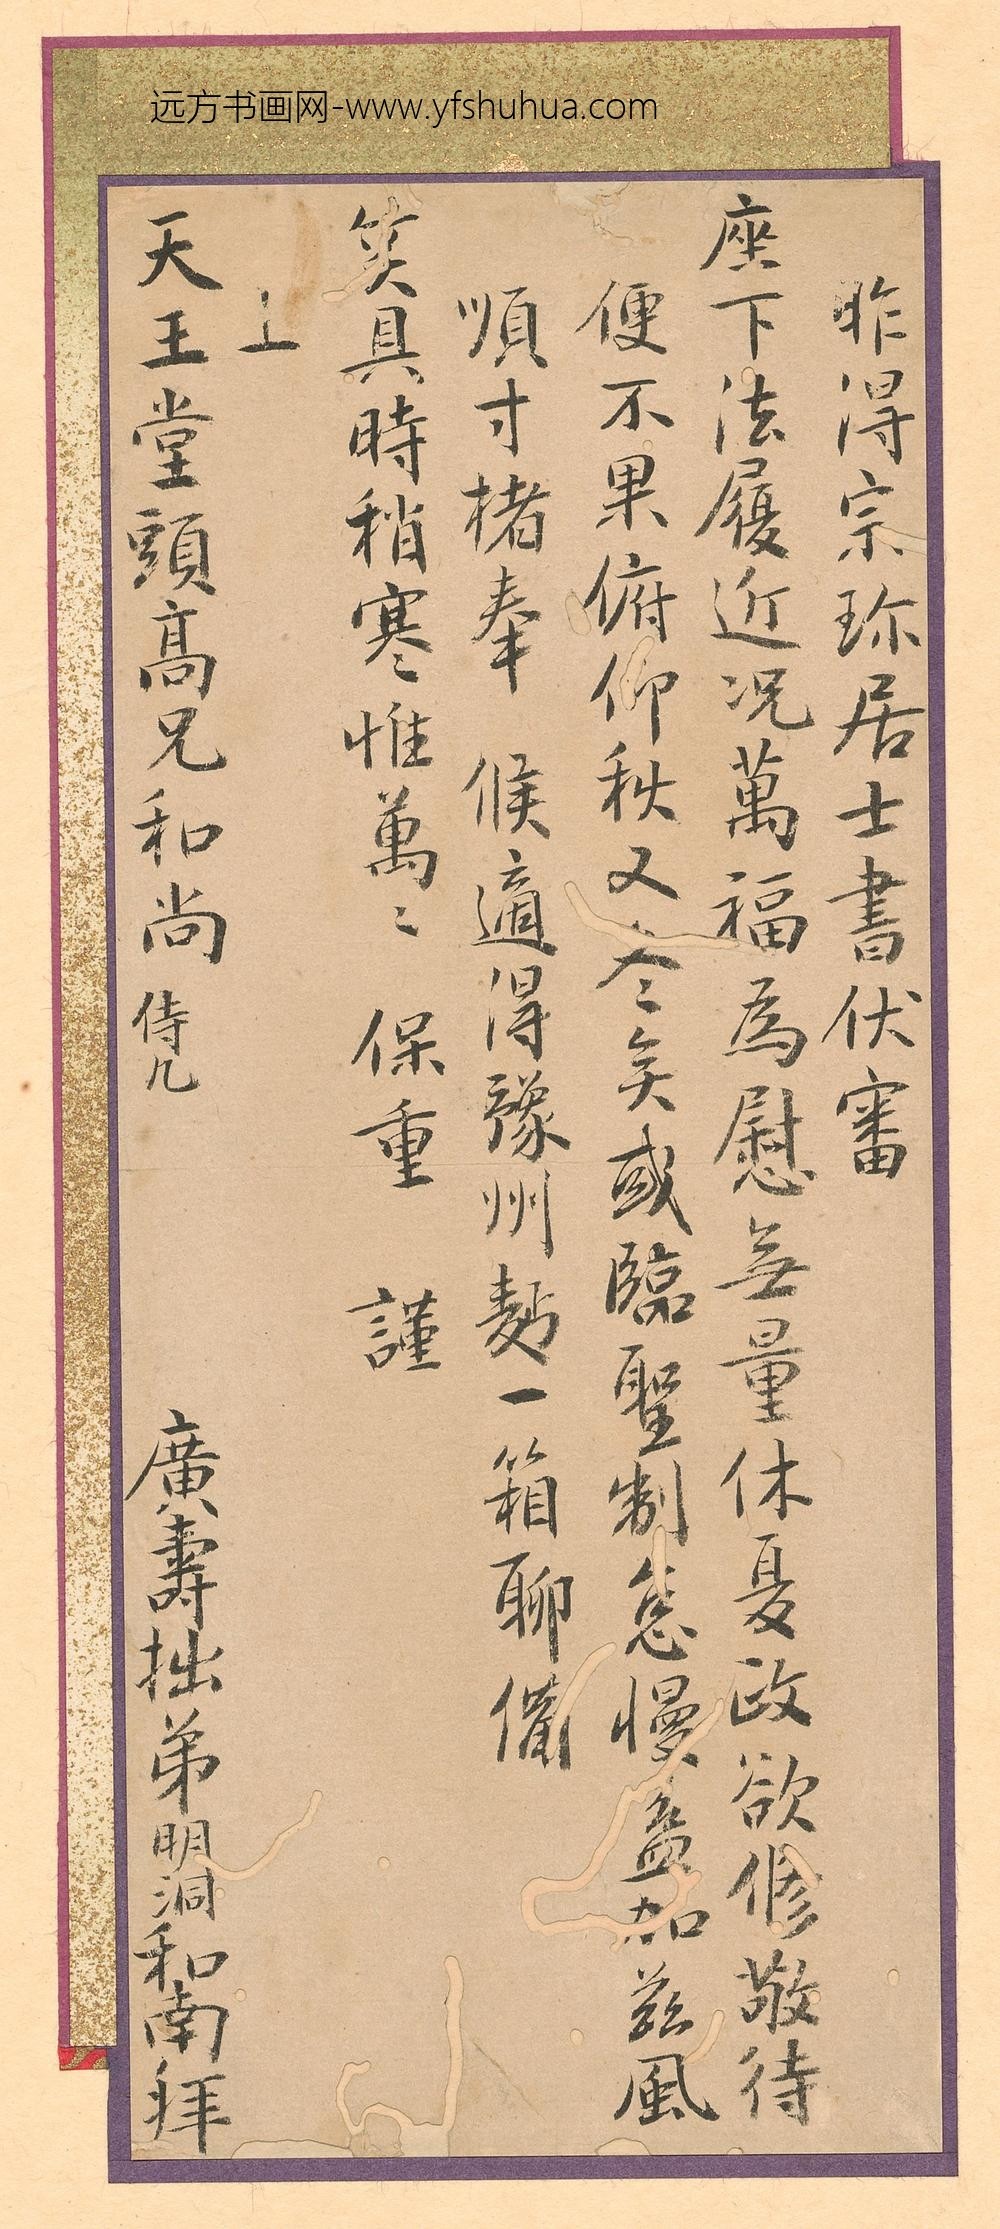 远方书画网-www.yfshuhua.com
昨得宗珎居士書伏審
座下法履近况萬福為慰無量休夏政欲修敬待
便不果俯仰秋又冬矣或臨聖制怠慢益加茲風
順寸楮奉 候適得豫州麪一箱聊備
笑具時稍寒〻惟萬〻 保重 謹
上
天王堂頭高兄和尚 侍几
廣壽拙弟明洞和南拜